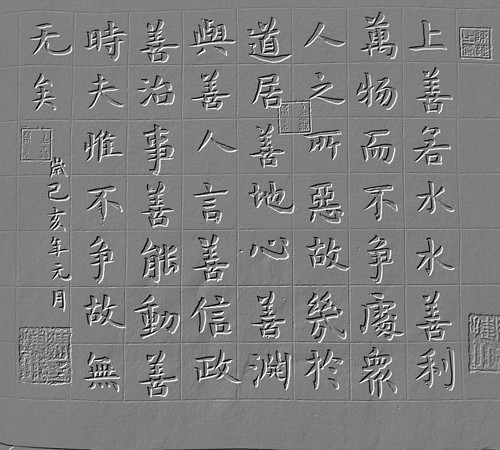 上善若水水善利
萬物而不争處衆
人之所惡故幾於
道居善地心善淵
與善人言善信政
善治事善能動善
時夫惟不争故無
无矣
歲己亥年元月